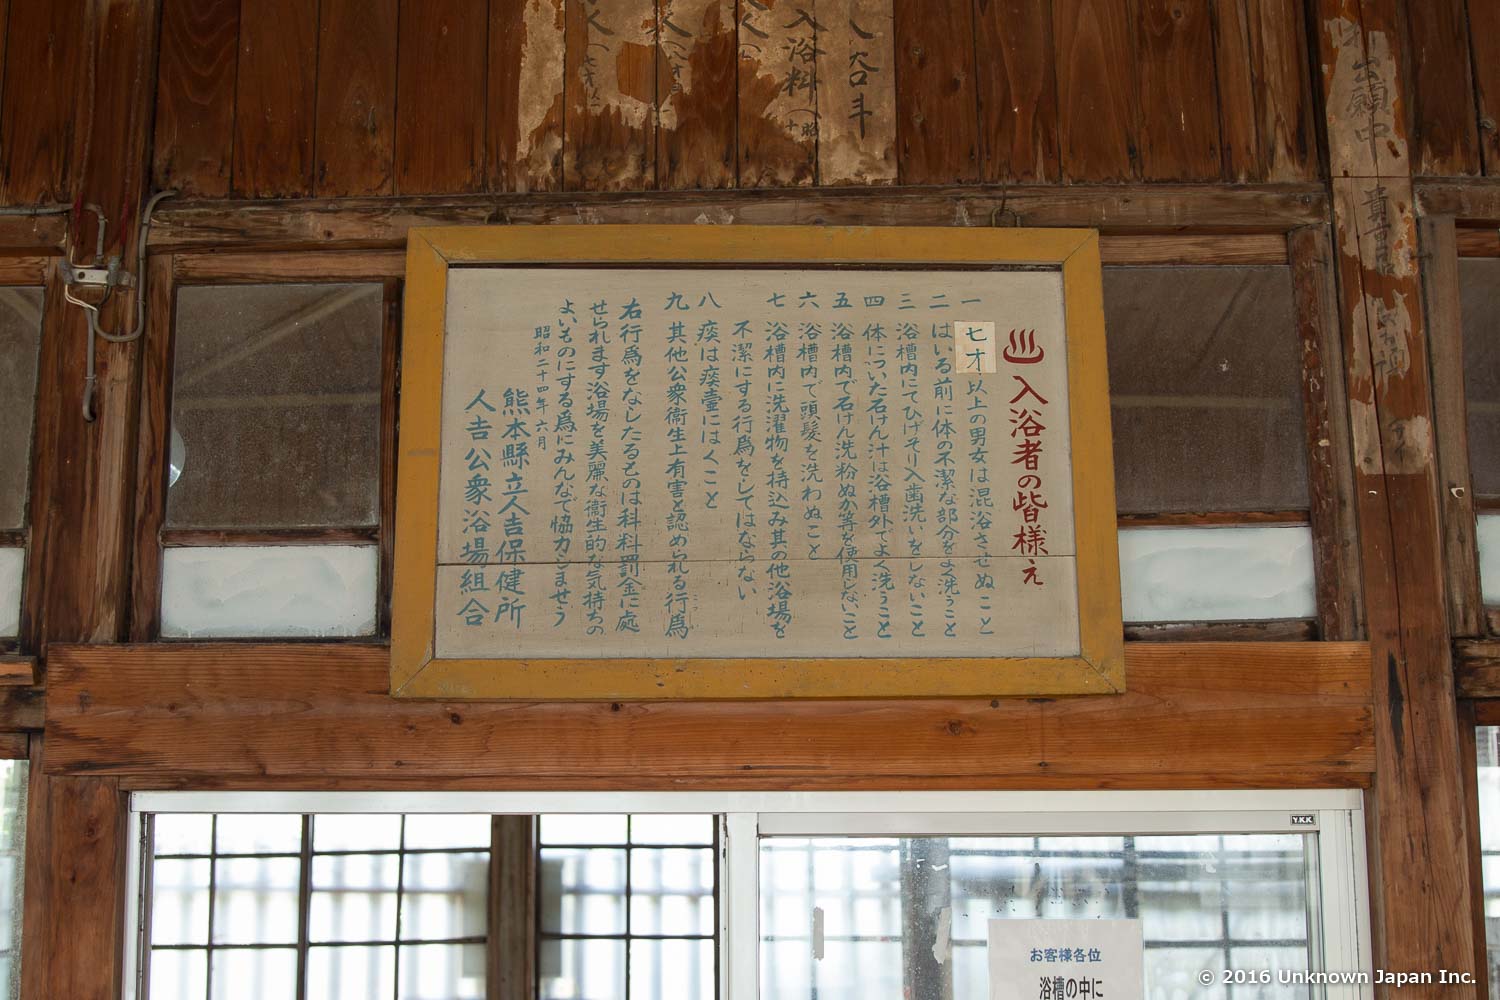 入浴者の皆様え
一 七才以上の男女は混浴させぬこと
二 はいる前に体の不潔な部分をよく洗うこと
三 浴槽内にてひげそり入歯洗いをしないこと
四 体についた石けん汁は浴槽外でよく洗うこと
五 浴槽内で石けん洗粉ぬか等を使用しないこと
六 浴槽内で頭髪を洗わぬこと
七 浴槽内に洗濯物を持込み其の他浴場を
不潔にする行為をしてはならない
八 痰は痰壷にはくこと
九 其他公衆衞生上有害と認められる行為
右行為をなしたるものは科料罰金に處
せられます浴場を美麗な衞生的な気持ちの
よいものにする為にみんなで協力しませう
昭和二十四年六月
熊本縣立人吉保健所
人吉公衆浴場組合
入浴料
出願中
YKK
お客様各位
浴槽の中に
© 2016 Unknown Japan Inc.